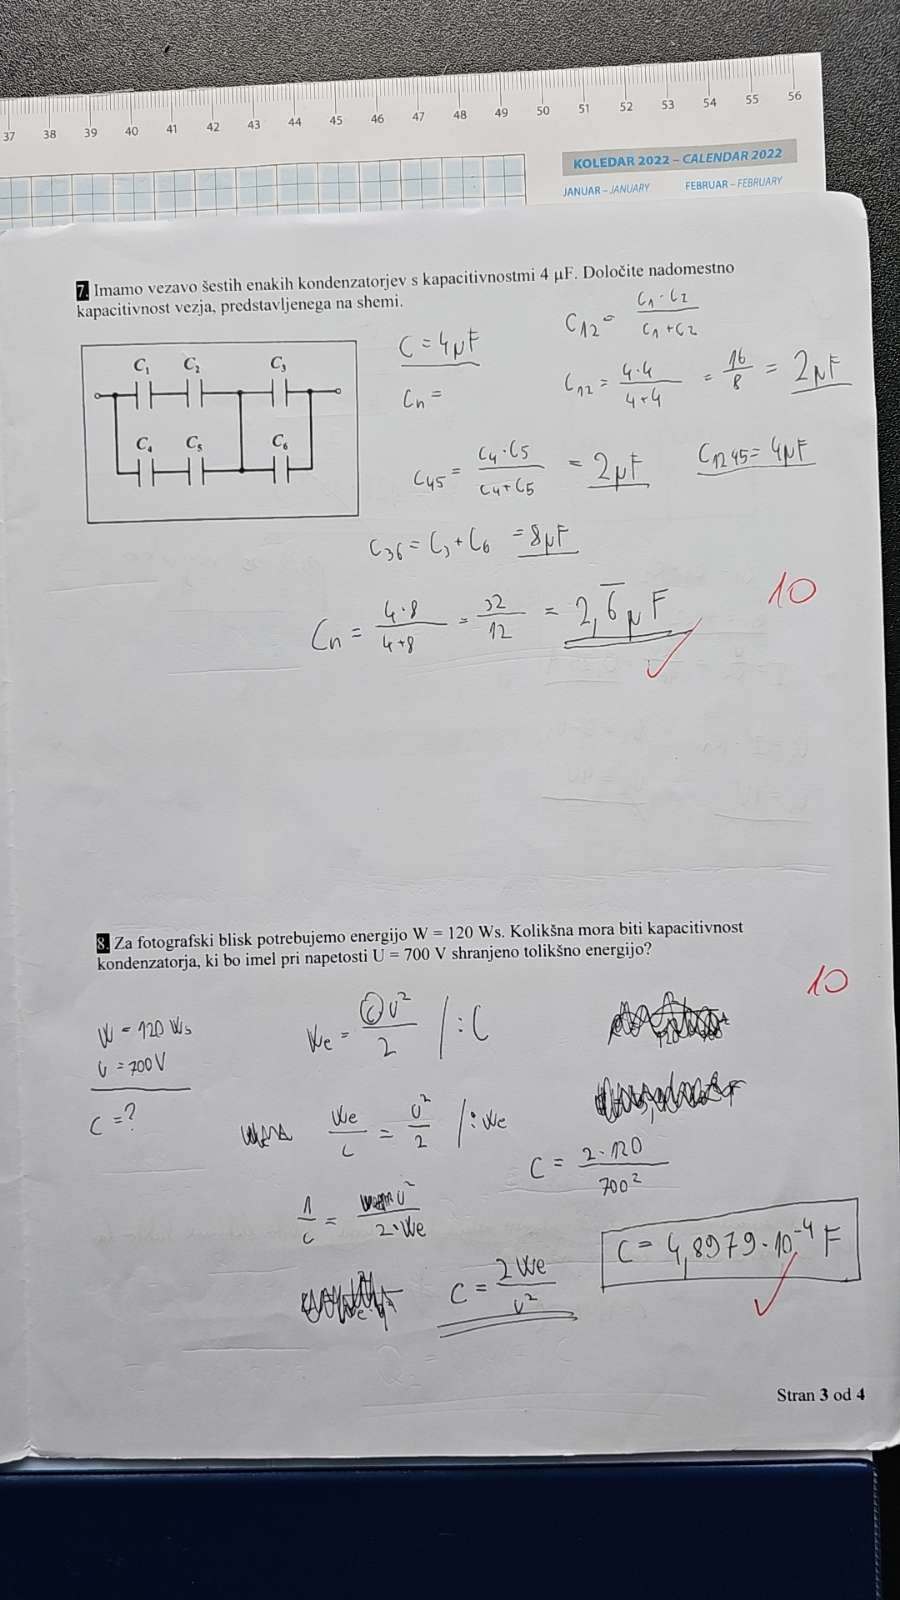 37 38 39 40 41 42 43 44 45 46 47 48 49 50 51 52 53 54 55 56
KOLEDAR 2022 – CALENDAR 2022
JANUAR – JANUARY FEBRUAR – FEBRUARY
7. Imamo vezavo šestih enakih kondenzatorjev s kapacitivnostmi 4 μF. Določite nadomestno
kapacitivnost vezja, predstavljenega na shemi.
C₁ C₂ C₃
C₄ C₅ C₆
C = 4μF
Cn =
C12 = C1·C2 / C1+C2
C12 = 4·4 / 4+4 = 16/8 = 2μF
C45 = C4·C5 / C4+C5 = 2μF
C1245 = 4μF
C36 = C3 + C6 = 8μF
10
Cn = 4·8 / 4+8 = 32/12 = 2,6̅ μF
8. Za fotografski blisk potrebujemo energijo W = 120 Ws. Kolikšna mora biti kapacitivnost
kondenzatorja, ki bo imel pri napetosti U = 700 V shranjeno tolikšno energijo?
10
W = 120 Ws
U = 700V
C = ?
We = CU²/2 /:C
We/C = U²/2 /:We
1/C = U²/2·We
C = 2We/U²
C = 2·120/700²
C = 4,8979·10⁻⁴ F
Stran 3 od 4